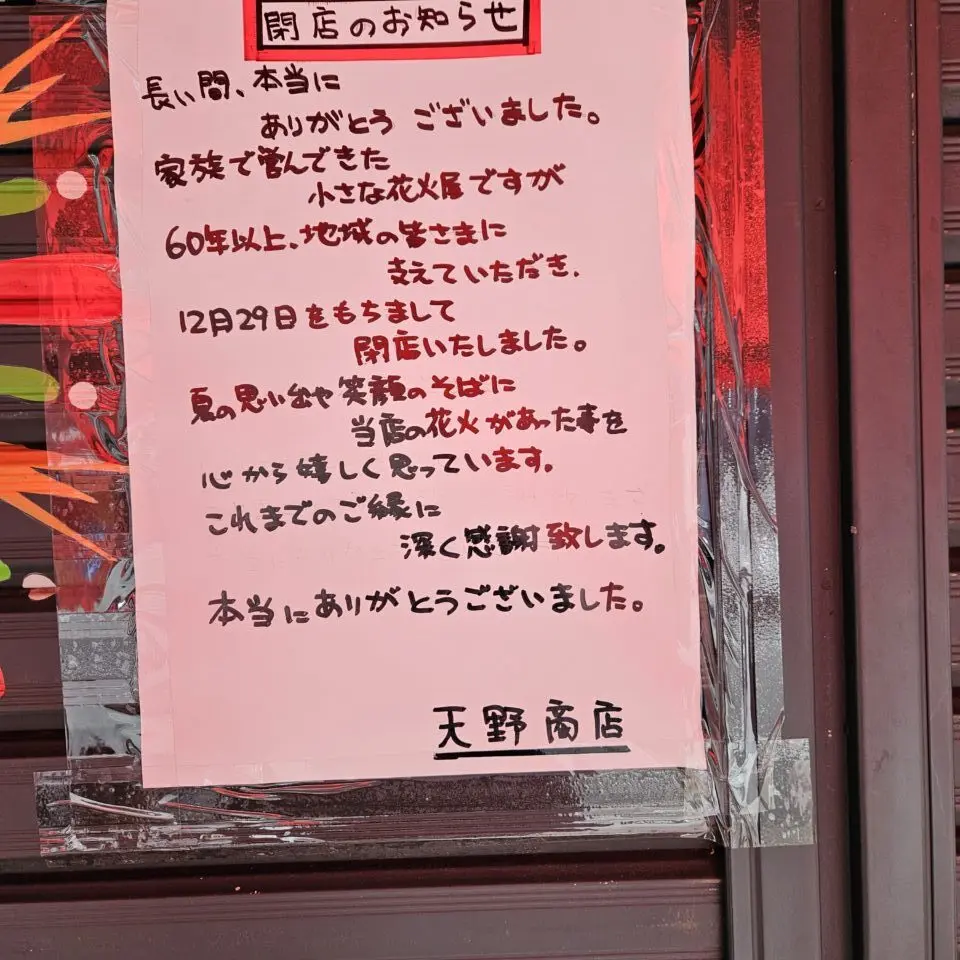 閉店のお知らせ
長い間、本当に
ありがとうございました。
家族で営んできた
小さな花火屋ですが
60年以上、地域の皆さまに
支えていただき、
12月29日をもちまして
閉店いたしました。
夏の思い出や笑顔のそばに
当店の花火があった事を
心から嬉しく思っています。
これまでのご縁に
深く感謝致します。
本当にありがとうございました。
天野商店